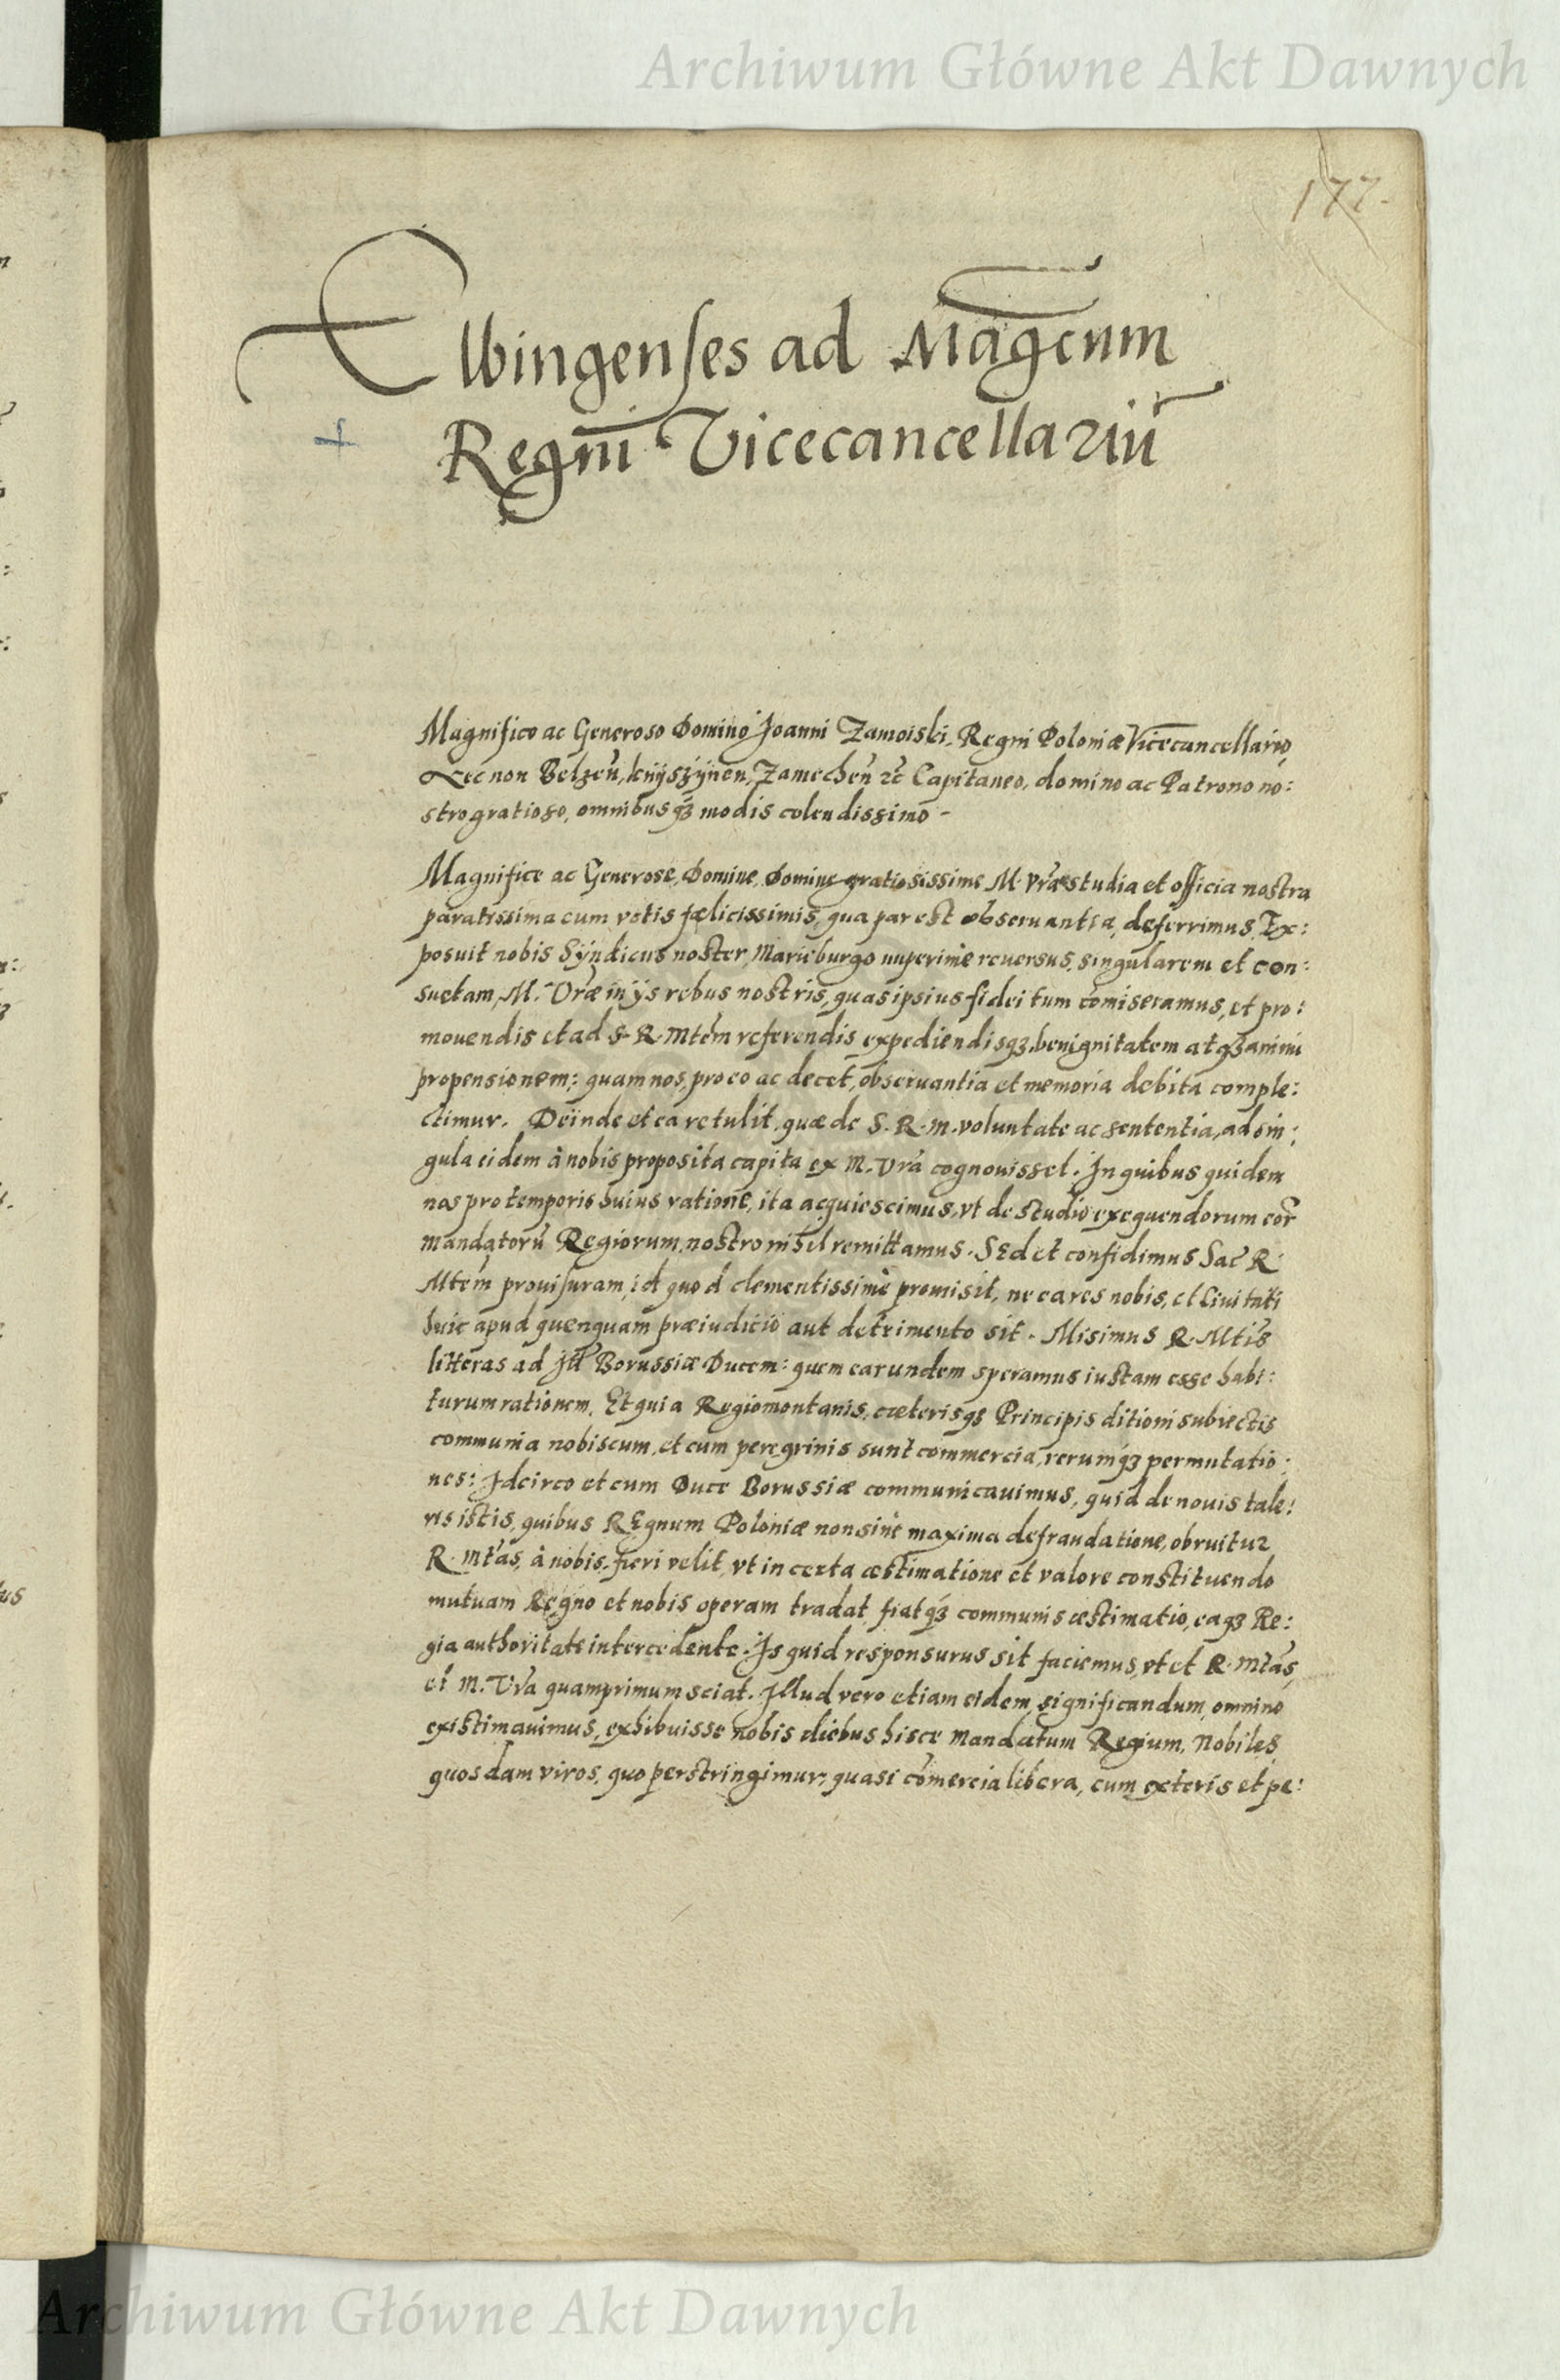 Archiwum Główne Akt Dawnych
177.
Elbingenses ad Magcum
Regni Vicecancellariū
Magnifico ac Generoso Domino Joanni Zamoiski, Regni Poloniæ Vicecancellario,
Necnon Belzeñ, knÿszÿnen, Zamecheñ zc Capitaneo, domino ac Patrono no:
stro gratioso, omnibusqꝫ modis colendissimo -
Magnifice ac Generose, Domine, Domine gratiosissime M. Vræ studia et officia nostra
paratissima cum votis fælicissimis, qua par est obseruantia, deferrimus. Ex:
posuit nobis Sÿndicus noster, Marieburgo nuperimè reuersus, singularem et con:
suetam, M. Vræ in ijs rebus nostris, quas ipsius fidei tum cōmiseramus, et pro:
mouendis et ad S. R. Mtem referendis expediendisqꝫ, benignitatem atqꝫ animi
propensionem: quam nos, pro eo ac decet, obseruantia et memoria debita comple:
ctimur. Deinde et ea retulit, quæ de S. R. M. voluntate ac sententia, ad sin:
gula eidem à nobis proposita capita ex M. Vrā cognouisset. In quibus quidem
nos pro temporis huius ratione, ita acquiescimus, vt de studio exequendorum eor
mandatorū Regiorum, nostro nihil remittamus. Sed et confidimus Sac R.
Mtem prouisuram, id quod clementissimè promisit, ne ea res nobis, et Ciuitati
huic apud quenquam præiudicio aut detrimento sit. Misimus R. Mtis
litteras ad Jll Borussiæ Ducem: quem earundem speramus iustam esse habi:
turum rationem. Et quia Regiomontanis, cæterisqꝫ Principis ditioni subiectis
communia nobiscum, et cum peregrinis sunt commercia, rerumqꝫ permutatio:
nes: Idcirco et cum Duce Borussiæ communicauimus, quid de nouis tale:
ris istis, quibus REgnum Poloniæ non sine maxima defraudatione, obruitur
R. Mtas, à nobis fieri velit, vt in certa æstimatione et valore constituendo
mutuam Regno et nobis operam tradat, fiatqꝫ communis æstimatio, eaqꝫ Re:
gia authoritate intercedente. Is quid responsurus sit faciemus, vt et R. Mtas,
et M. Vrā quamprimum sciat. Illud vero etiam eidem significandum omnino
existimauimus, exhibuisse nobis diebus hisce Mandatum Regium, Nobiles
quosdam viros, quo perstringimur, quasi cōmercia libera, cum exteris et pe:
Archiwum Główne Akt Dawnych